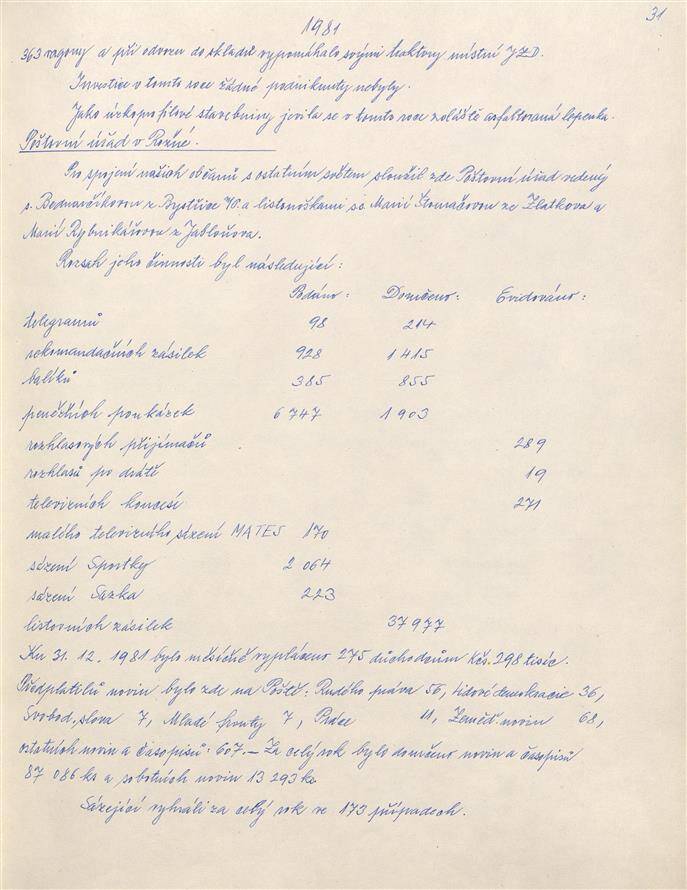 31
1981
363 vagony a při odvozu do skladu vypomáhalo svými traktory místní JZD.
Investice v tomto roce žádné podniknuty nebyly.
Jako úzkoprofilové stavebniny jevila se v tomto roce zvláště asfaltovaná lepenka.
Poštovní úřad v Rožné.
Pro spojení našich občanů s ostatním světem sloužil zde Poštovní úřad vedený
s. Bednaříkovou z Bystřice n/P. a listonoškami ss. Marií Štouračovou ze Zlatkova a
Marií Rybnikářovou z Jabloňova.
Rozsah jeho činnosti byl následující:
Podáno: Doručeno: Evidováno:
telegramů 98 214
rekomandačních zásilek 928 1415
balíků 385 855
peněžních poukázek 6 747 1 903
rozhlasových přijímačů 289
rozhlasů po drátě 19
televizních koncesí 271
malého televizního sázení MATES 170
sázení Sportky 2 064
sázení Sazka 223
listovních zásilek 37 977
Ku 31.12.1981 bylo měsíčně vypláceno 275 důchodcům Kčs. 298 tisíc.
Předplatitelů novin bylo zde na Poště: Rudého práva 56, Lidové demokracie 36,
Svobod. slova 7, Mladé fronty 7, Práce 11, Zeměď novin 68,
ostatních novin a časopisů: 607.- Za celý rok bylo doručeno novin a časopisů
87 086 ks a sobotních novin 13 293 ks.
Sázející vyhráli za celý rok ve 173 případech.